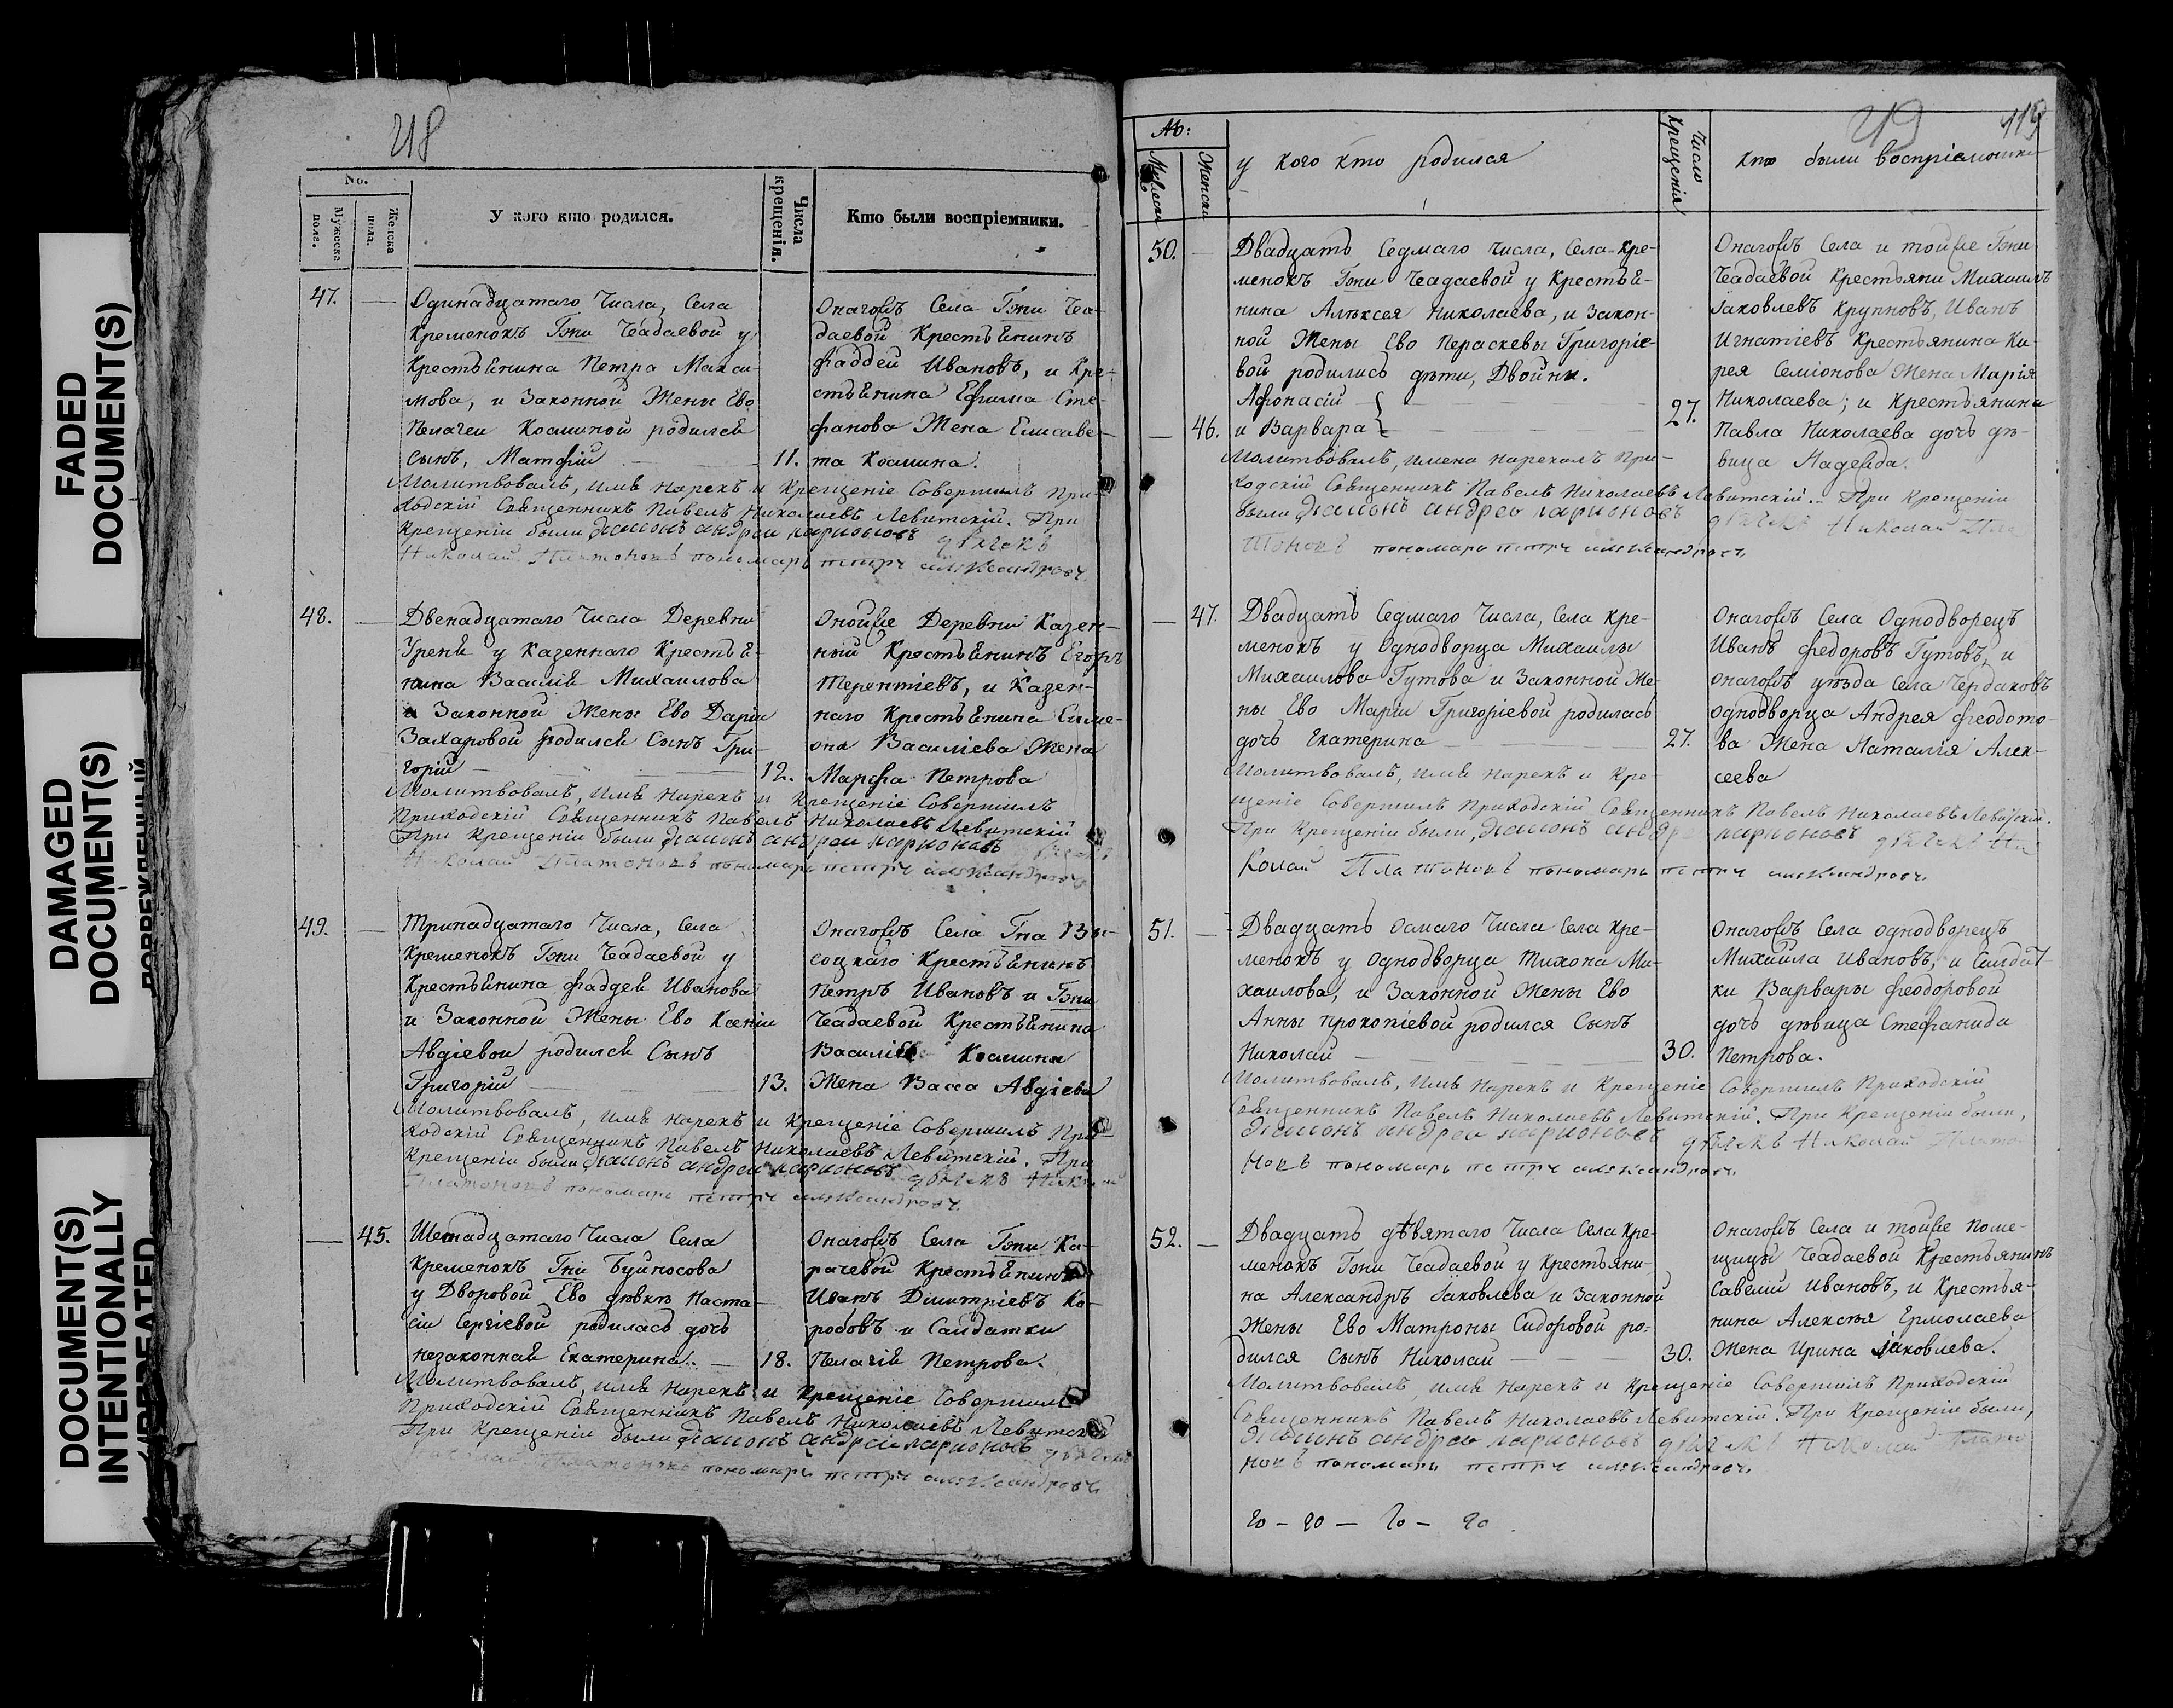 FADED
DOCUMENT(S)
DAMAGED
DOCUMENT(S)
DOCUMENT(S)
INTENTIONALLY
48
No.
Мужеска пола.
Женска пола.
У кого кто родился.
Числа крещенія.
Кто были воспріемники.
47.
Одинадцатаго Числа, Села
Кременокъ Гжи Чеадаевой у
Крестьянина Петра Макси-
мова, и Законной Жены Ево
Пелагеи Косминой родился
сынъ, Матфій
11.
Онагожъ Села Гжи Чеа-
даевой Крестьянинъ
Фаддей Ивановъ, и Кре-
стьянина Ефима Сте-
фанова Жена Елисаве-
та Космина.
Молитвовалъ, имя нарекъ и Крещеніе Совершилъ При-
ходскій Священникъ Павелъ Николаевъ Левитскій. При
Крещеніи были діаконъ андреи ларионовъ дьячекъ
Николай Платоновъ пономарь петръ александровъ
48.
Двенадцатаго Числа Деревни
Уреня у Казеннаго Крестья-
нина Василія Михаилова
и Законной Жены Ево Дарьи
Захаровой родился Сынъ Гри-
горій
12.
Оной же Деревни Казен-
ный Крестьянинъ Егоръ
Терентіевъ, и Казен-
наго Крестьянина Симе-
она Василіева Жена
Марфа Петрова
Молитвовалъ, имя нарекъ и Крещеніе Совершилъ
Приходскій Священникъ Павелъ Николаевъ Левитскій
При Крещеніи были діаконъ андреи ларионовъ дьячекъ
Николай Платоновъ пономарь петръ александровъ
49.
Тринадцатаго Числа, Села
Кременокъ Гжи Чеадаевой у
Крестьянина Фаддея Иванова
и Законной Жены Ево Ксеніи
Авдіевои родился Сынъ
Григорій
13.
Онагожъ Села Гна Вы-
соцкаго Крестьянинъ
Петръ Ивановъ и Гжи
Чеадаевой Крестьянина
Василія Космина
Жена Васса Авдіева
Молитвовалъ, имя нарекъ и Крещеніе Совершилъ При-
ходскій Священникъ Павелъ Николаевъ Левитскій. При
Крещеніи были діаконъ андреи ларионовъ дьячекъ Николай
Платоновъ пономарь петръ александровъ
45.
Шестнадцатаго Числа Села
Кременокъ Гна Буйносова
у Дворовой Ево девки Наста-
сіи Сергіевой родилась дочь
незаконная Екатерина.
18.
Онагожъ Села Гжи Ка-
рачевой Крестьянинъ
Иванъ Димитріевъ Ко-
робовъ и Салдатки
Пелагія Петрова.
Молитвовалъ, имя нарекъ и Крещеніе Совершилъ
Приходскій Священникъ Павелъ Николаевъ Левитскій
При Крещеніи были діаконъ андреи ларионовъ дьячекъ
Николай Платоновъ пономарь петръ александровъ
49
119
№:
Мужеска
Женска
у кого кто родился
Число Крещенія
кто были воспріемники
50.
46.
Двадцать Седмаго числа, Села Кре-
менокъ Гжи Чеадаевой у Крестья-
нина Алексея Николаева, и Закон-
ной Жены Ево Параскевы Григоріе-
вой родились дети, Двойни.
Афонасій
и Варвара
27.
Онагожъ Села и тойже Гжи
Чеадаевой Крестьяни Михаилъ
Іаковлевъ Крупновъ, Иванъ
Игнатіевъ Крестьянина Ки-
рея Семіонова Жена Марія
Николаева; и Крестьянина
Павла Николаева дочь де-
вица Надежда.
Молитвовалъ, имена нарекалъ При-
ходскій Священникъ Павелъ Николаевъ Левитскій. При Крещеніи
были діаконъ андреи ларионовъ дьячекъ Николай Пла
тоновъ пономарь петръ александровъ
47.
Двадцать Седмаго Числа, Села Кре-
менокъ у Однодворца Михаилы
Михаилова Гутова и Законной Же-
ны Ево Маріи Григоріевой родилась
дочь Екатерина
27.
Онагожъ Села Однодворецъ
Иванъ Федоровъ Гутовъ, и
онагожъ уезда Села Чердаковъ
однодворца Андрея Феодото-
ва Жена Наталія Алек-
сеева
Молитвовалъ, имя нарекъ и Кре-
щеніе Совершилъ Приходскій Священникъ Павелъ Николаевъ Левитскій.
При Крещеніи были, діаконъ андреи ларионовъ дьячекъ Ни
колай Платоновъ пономарь петръ александровъ
51.
Двадцать Осмаго Числа Села Кре-
менокъ у Однодворца Тихона Ми-
хаилова, и Законной Жены Ево
Анны Прокопіевой родился Сынъ
Николай
30.
Онагожъ Села однодворецъ
Михаила Ивановъ, и Салдат-
ки Варвары Феодоровой
дочь девица Стефанида
Петрова.
Молитвовалъ, имя нарекъ и Крещеніе Совершилъ Приходскій
Священникъ Павелъ Николаевъ Левитскій. При Крещеніи были,
діаконъ андреи ларионовъ дьячекъ Николай Плато
новъ пономарь петръ александровъ
52.
Двадцать девятаго Числа Села Кре-
менокъ Гжи Чеадаевой у Крестьяни-
на Александръ Іаковлева и Законной
Жены Ево Матроны Сидоровой ро-
дился Сынъ Николай
30.
Онагожъ Села и тойже поме-
щицы Чеадаевой Крестьянинъ
Савелій Ивановъ, и Крестья-
нина Алексея Ермолаева
Жена Ирина Іаковлева.
Молитвовалъ имя нарекъ и Крещеніе Совершилъ Приходскій
Священникъ Павелъ Николаевъ Левитскій. При Крещеніи были,
діаконъ андреи ларионовъ дьячекъ Николай Плато
новъ пономарь петръ александровъ